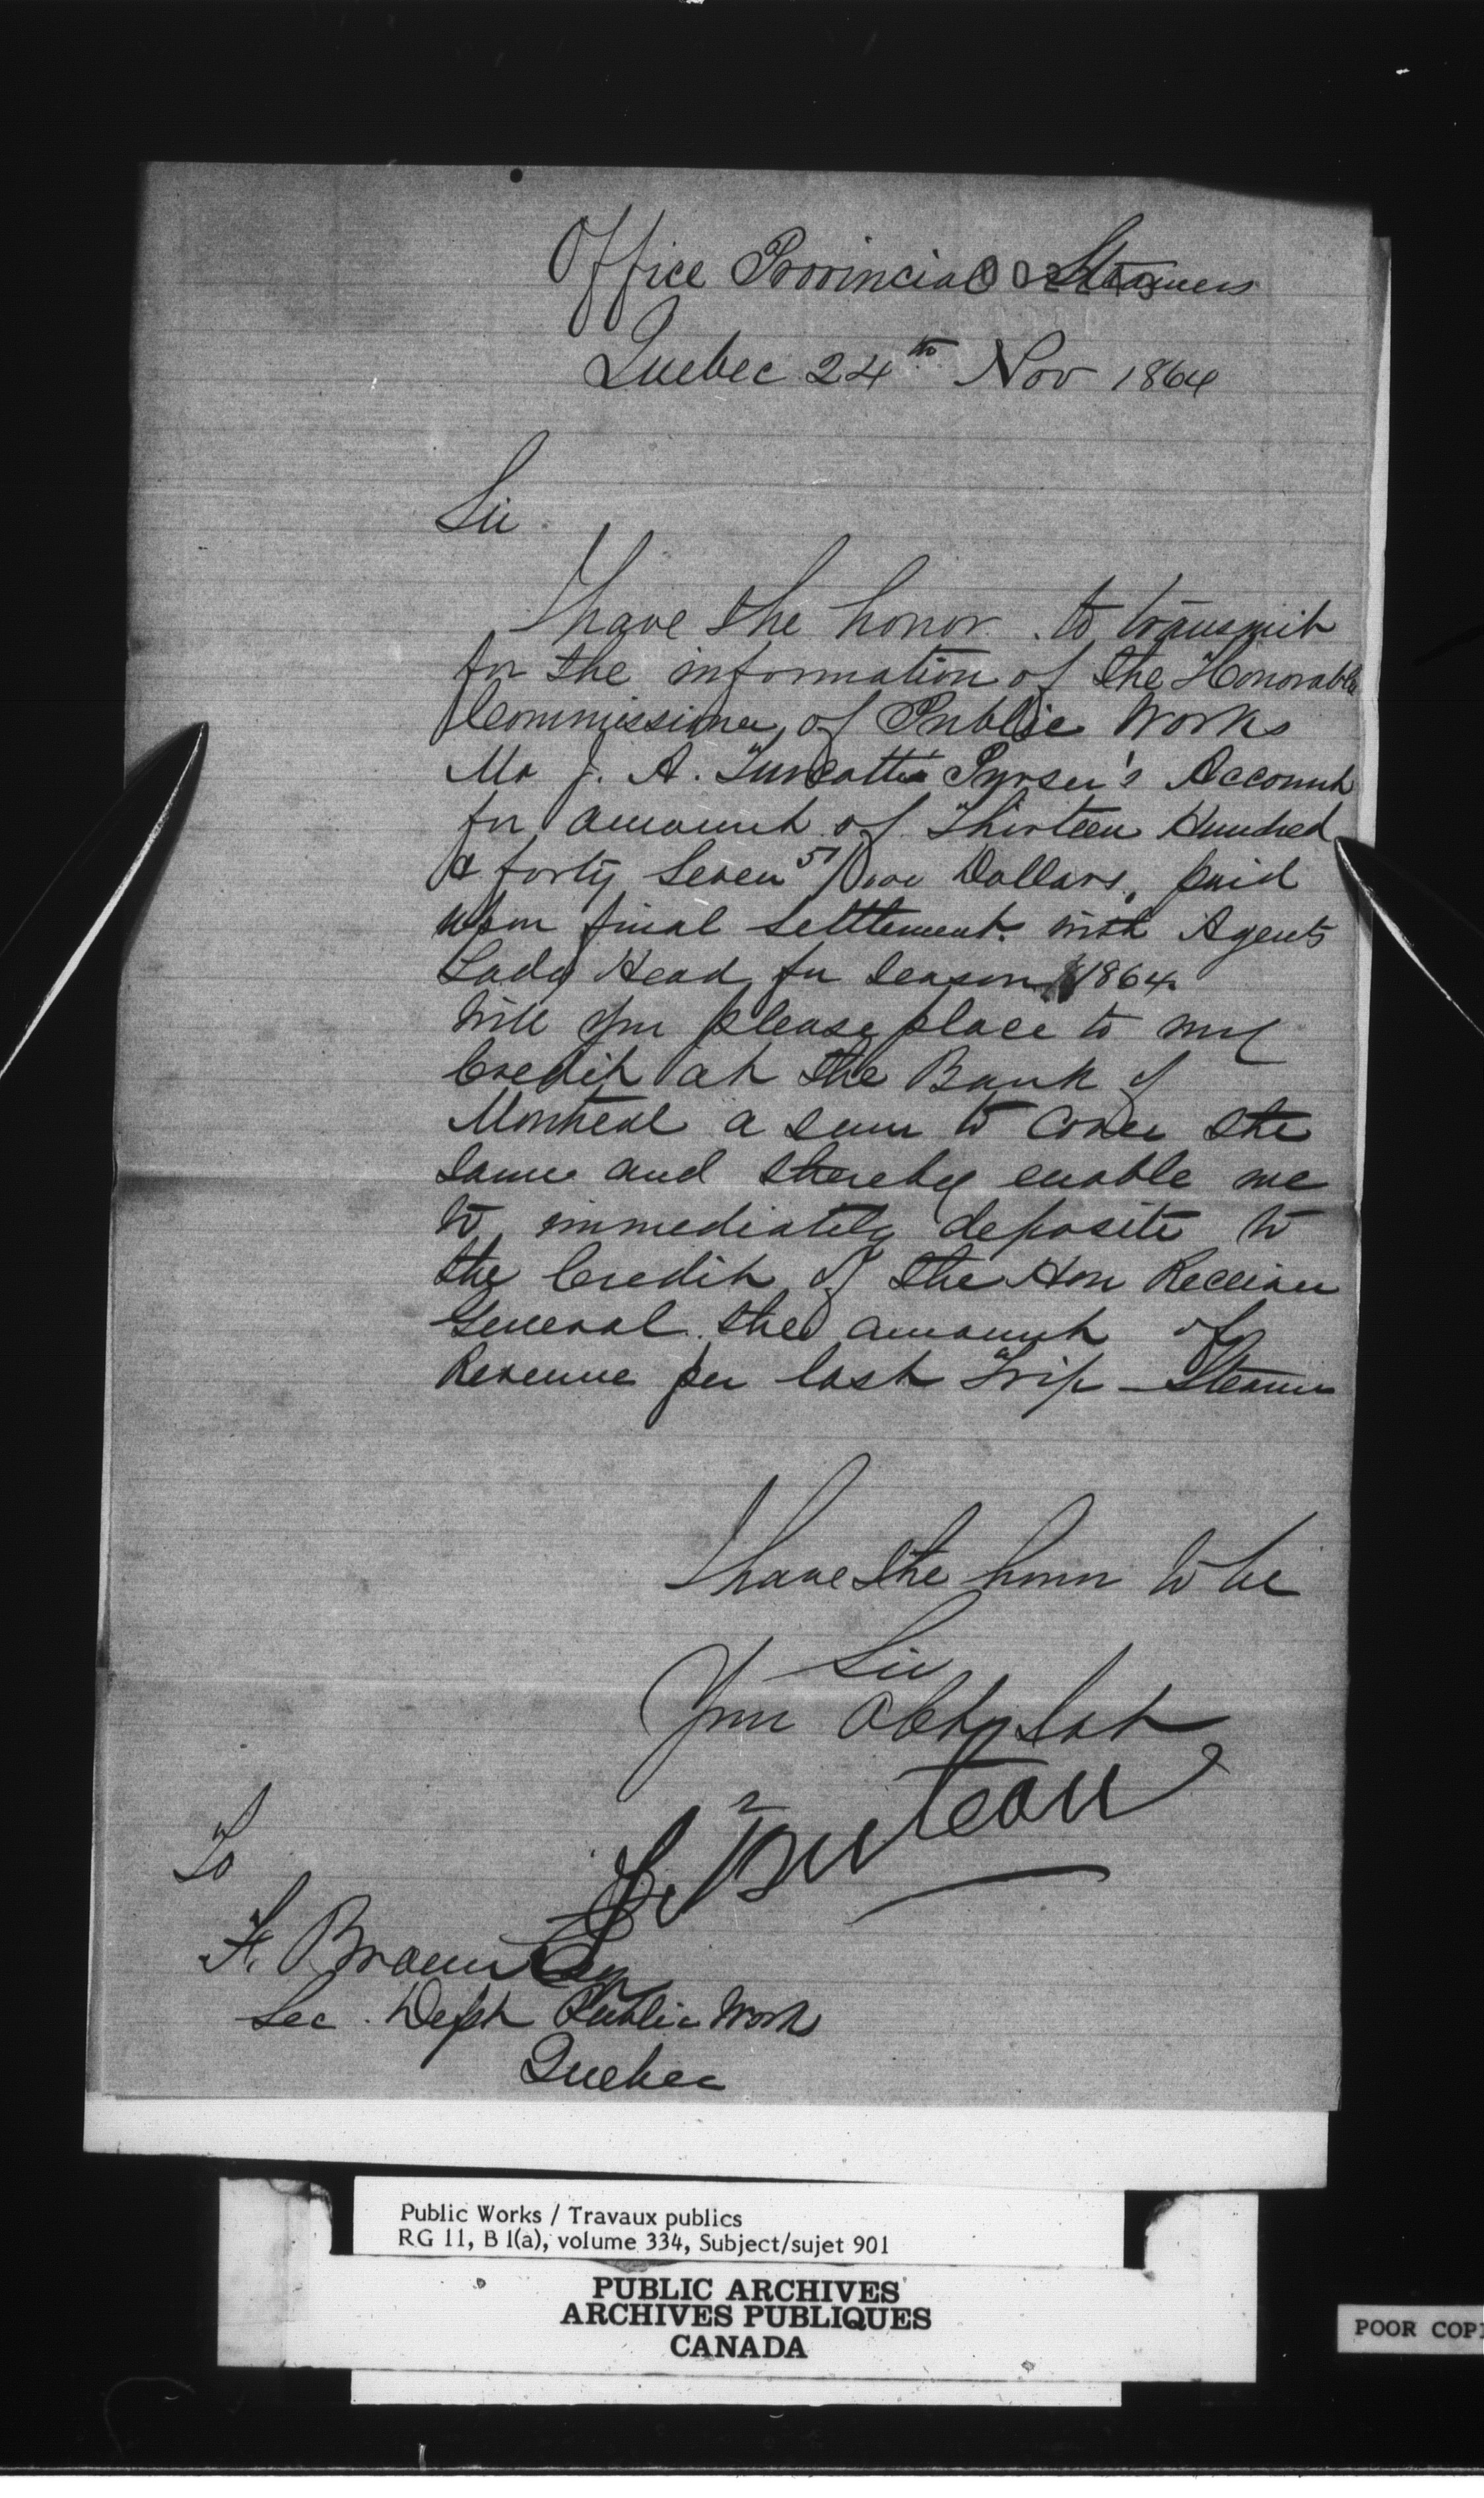 Office Provincial Steamers
Quebec 24th Nov 1864
Sir
I have the honor to transmit
for the information of the Honorable
Commissioner of Public Works
Mr J. A. Turcotte's Purser's Account
for amount of Thirteen Hundred
& forty Seven 51/100 Dollars, paid
upon final settlement with Agents
Lady Head for season 1864
Will you please place to my
Credit at the Bank of
Montreal a sum to cover the
same and thereby enable me
to immediately deposite to
the Credit of the Hon Receiver
General the amount of
Revenue per last Trip Steamer
I have the honor to be
Sir
Your Obt Svt
Buteau
To
F. Braun Esq
Sec. Dept Public Works
Quebec
Public Works / Travaux publics
RG 11, B 1(a), volume 334, Subject/sujet 901
PUBLIC ARCHIVES
ARCHIVES PUBLIQUES
CANADA
POOR COP